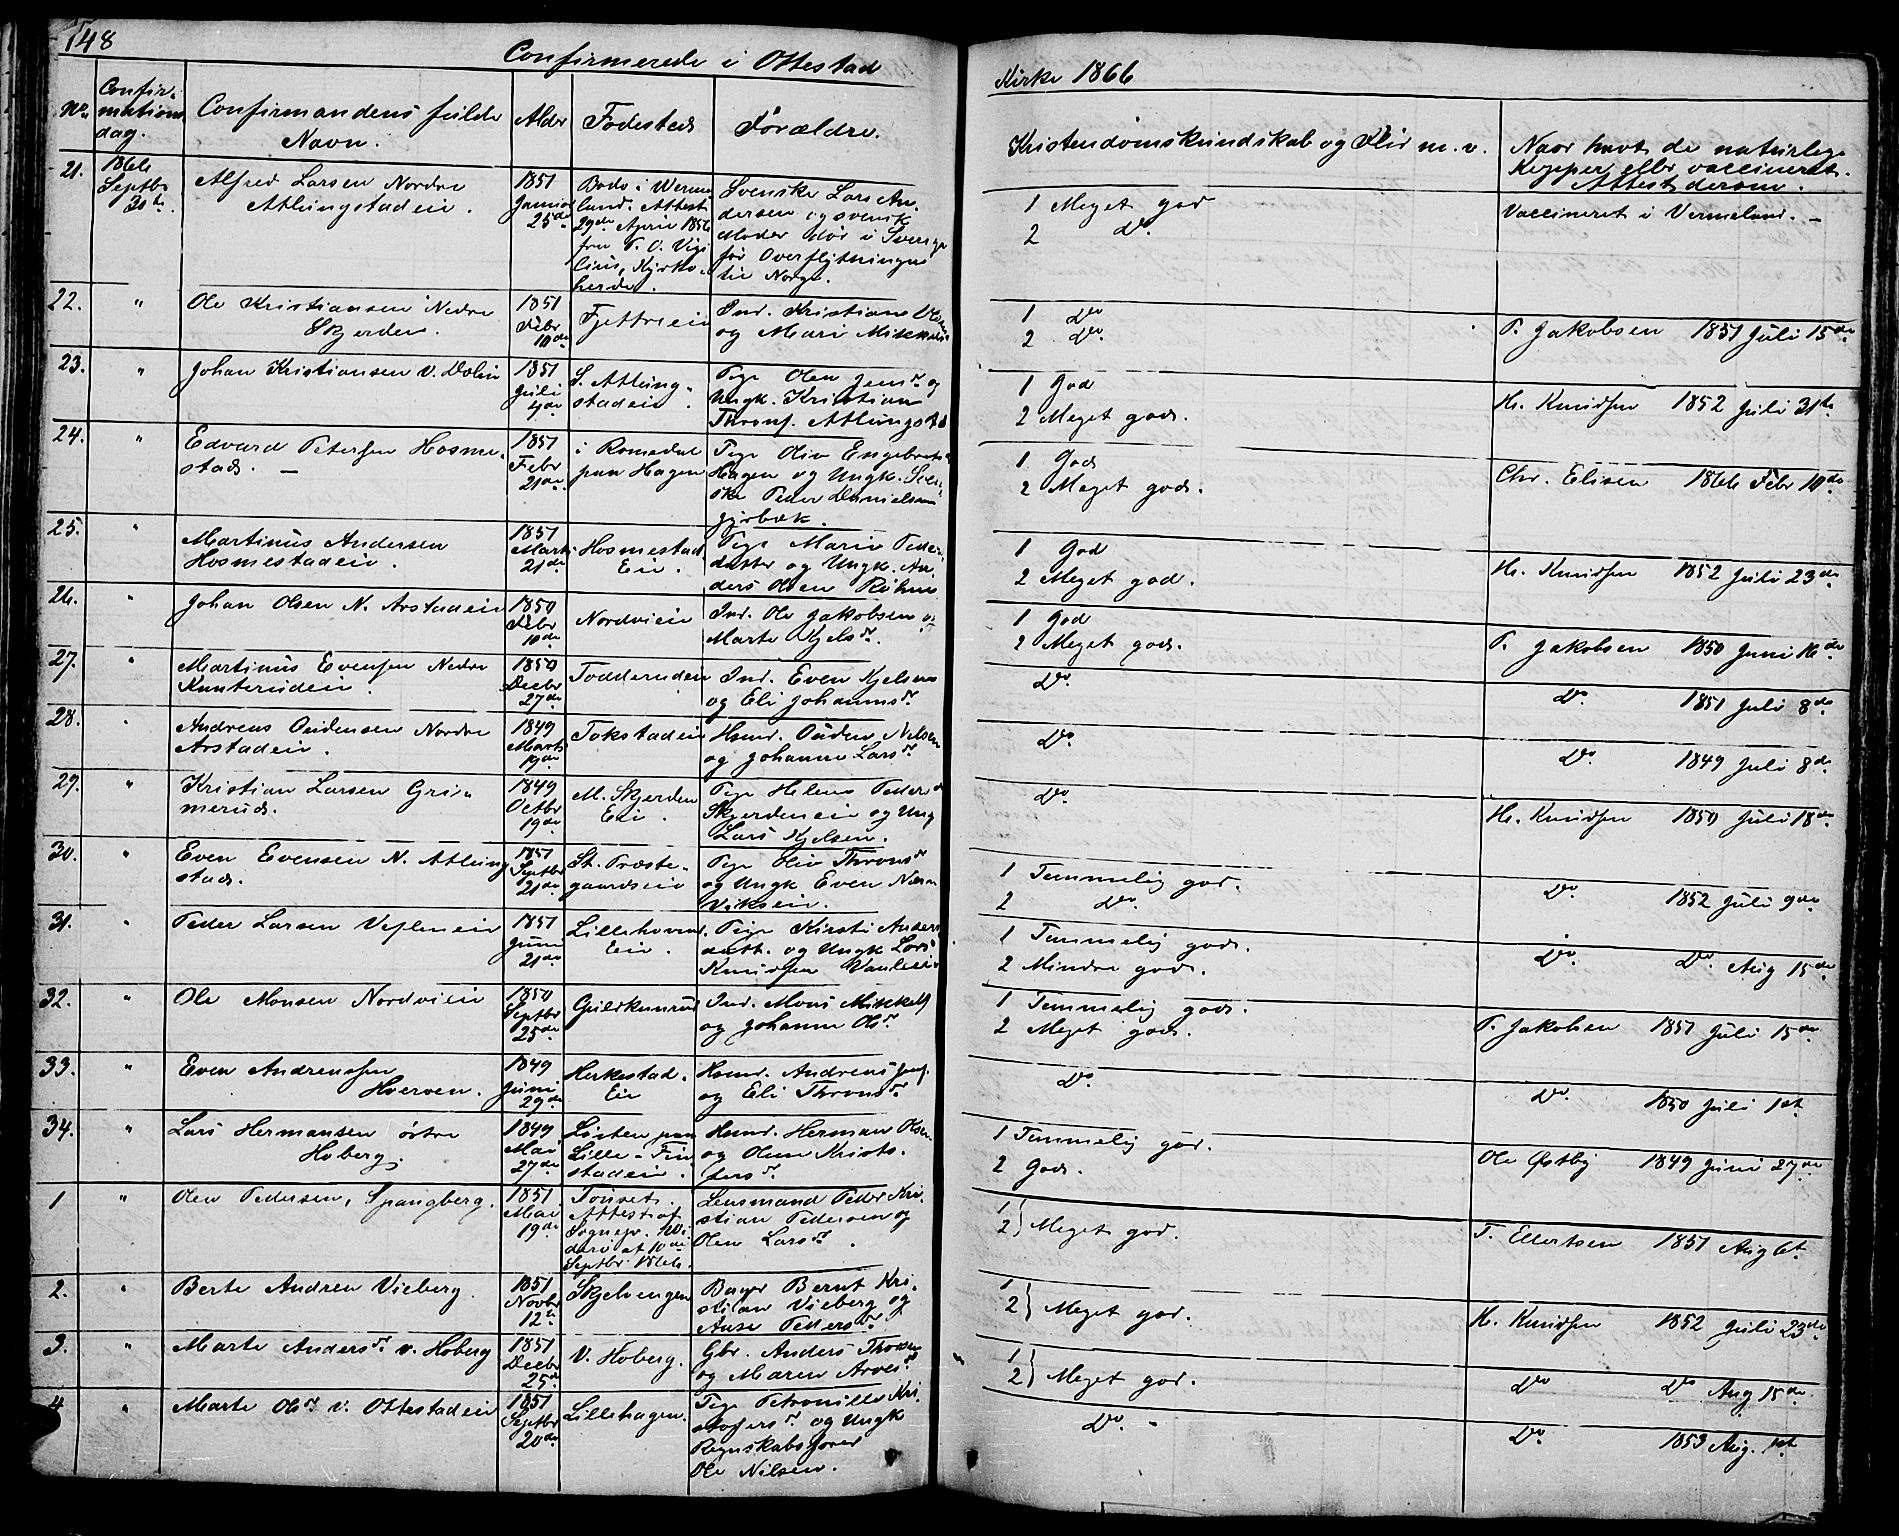 148
Confirmerede i Ottestad
Kirke 1866
No.
Confir-
mations
dag.
Confirmandens fulde
Navn.
Alder
Fødested
Forældre.
Kristendomskundskab og Flid m. v.
Naar havt de naturlige
Kopper eller vaccineret.
Attest derom.
21.
1866
Septbr
30te
Alfred Larsen Nordre
Atlungstadeie.
1851
Januar
25de
Bodo i Werm-
land. Attest
29de April 1856
fra P. O. Vigi-
lius, Kyrko-
herde.
Svenske Lars An-
dersen og svensk
Moder død i Sverige
før Overflytningen
til Norge.
1 Meget god
2 Do.
Vaccineret i Vermeland. –
22.
"
Ole Kristiansen Nedre
Skjerden.
1851
Febr
10de
Fjettreeie
Ind. Kristian Olsen
og Mari Mikkels
1 Do
2 Do.
P. Jakobsen 1851 Juli 15de
23.
"
Johan Kristiansen v. Dalin
1851
Juli
4de
S. Atlung-
stadeie.
Pige Olea Jensdr og
Ungk. Kristian
Thronf. Atlungstad
1 God
2 Meget god.
H. Knudsen 1852 Juli 31te
24.
"
Edvard Petersen Hosme-
stad. –
1851
Febr
21de
i Romedal
paa Hagen
Pige Olia Engebrets
Hagen og Ungk. Sven-
ske Peder Danielsen
1 God
2 Meget god.
Chr. Elisen 1866 Febr 10de
25.
"
Martinus Andersen
Hosmestadeie.
1851
Marts
21de
Hosmestad
Eie.
Pige Marie Peder-
datter og Ungk. An-
ders Olsen
1 God
2 Meget god.
H. Knudsen 1852 Juli 23de
26.
"
Johan Olsen N. Arstadeie
1850
Febr
10de
Nordvieie
Ind. Ole Jakobsen og
Marte Kjelsdr.
1 God
2 Meget god.
P. Jakobsen 1850 Juni 16de
27.
"
Martinus Evensen Nedre
Kunterudeie.
1850
Decbr
27de
Todderudeie
Ind. Even Kjelsen
og Eli Johannsdr.
Do.
Do. 1851 Juli 8de
28.
"
Andreas Oudensen Nordre
Arstadeie.
1849
Marts
19de
Tokstadeie
Hsmd. Ouden Nilsen
og Johanne Larsdr
Do.
Do. 1849 Juli 8de
29.
"
Kristian Larsen Gri-
merud.
1849
Octbr
19de
M. Skjerden
Eie.
Pige Helene Peders
Skjerdeneie og Ung
Lars Kjelsen.
Do.
H. Knudsen 1850 Juli 18de
30.
"
Even Evensen N. Atlung
stad.
1851
Septbr
21de
St. Præste-
gaardseie
Pige Olia Thronsdr
og Ungk. Even
Vikseie.
1 Temmelig god.
2 Do.
Do. 1852 Juli 9de
31.
"
Peder Larsen Veflineie
1851
Juni
21de
Lillehovind
Eie.
Pige Kirsti Anders
datt. og Ungk Lars
Knudsen
1 Temmelig god.
2 Mindre god.
Do. Do. Aug 15de
32.
"
Ole Monsen Nordvieie
1850
Septbr
25de
Guldkunrud
Ind. Mons Mikkels
og Johanne Olsdr.
1 Temmelig god.
2 Meget god.
P. Jakobsen 1851 Juli 15de
33.
"
Even Andreassen
Hverven.
1849
Juni
29de
Herkestad
Eie
Hsmd. Andreas Jens.
og Eli Thronsdr.
Do.
Do. 1850 Juli 1st.
34.
"
Lars Hermansen østre
Hoberg.
1849
Mai
27de
Løiten paa
Lille-Fin-
stadeie.
Hsmd. Herman Olsen
og Olea Kristo-
fersdr.
1 Temmelig god.
2 God.
Ole Østby 1849 Juni 27de
1
"
Olea Pedersen, Spangberg.
1851
Mai
19de
Tønset.
Attest af
Sognepr.
af 10de
Septbr 1866.
Lensmand Peder Kri-
stian Pedersen og
Olea Larsdr.
1
2 } Meget god.
T. Ellertsen 1851 Aug 6t.
2.
"
Berte Andrea Vieberg.
1851
Novbr
12te
Skjelvengen
Bager Bernt Kri-
stian Vieberg og
Anse Pedersdr
1
2 } Meget god.
H. Knudsen 1852 Juli 23de
3.
"
Marte Andersdr v. Hoberg
1851
Decbr
25de
V. Hoberg.
Gbr. Anders Thoresen
og Maren Arnesdr
1
2 } Meget god.
Do Do Aug 15de
4.
"
Marte Olsdr v. Ottestadeie
1851
Septbr
20de
Lillehagen.
Pige Petronille Kri-
stofersdr. og Ungk
Regnskabsfører
Ole Nilsen.
Do. –
Do. 1853 Aug. 1st